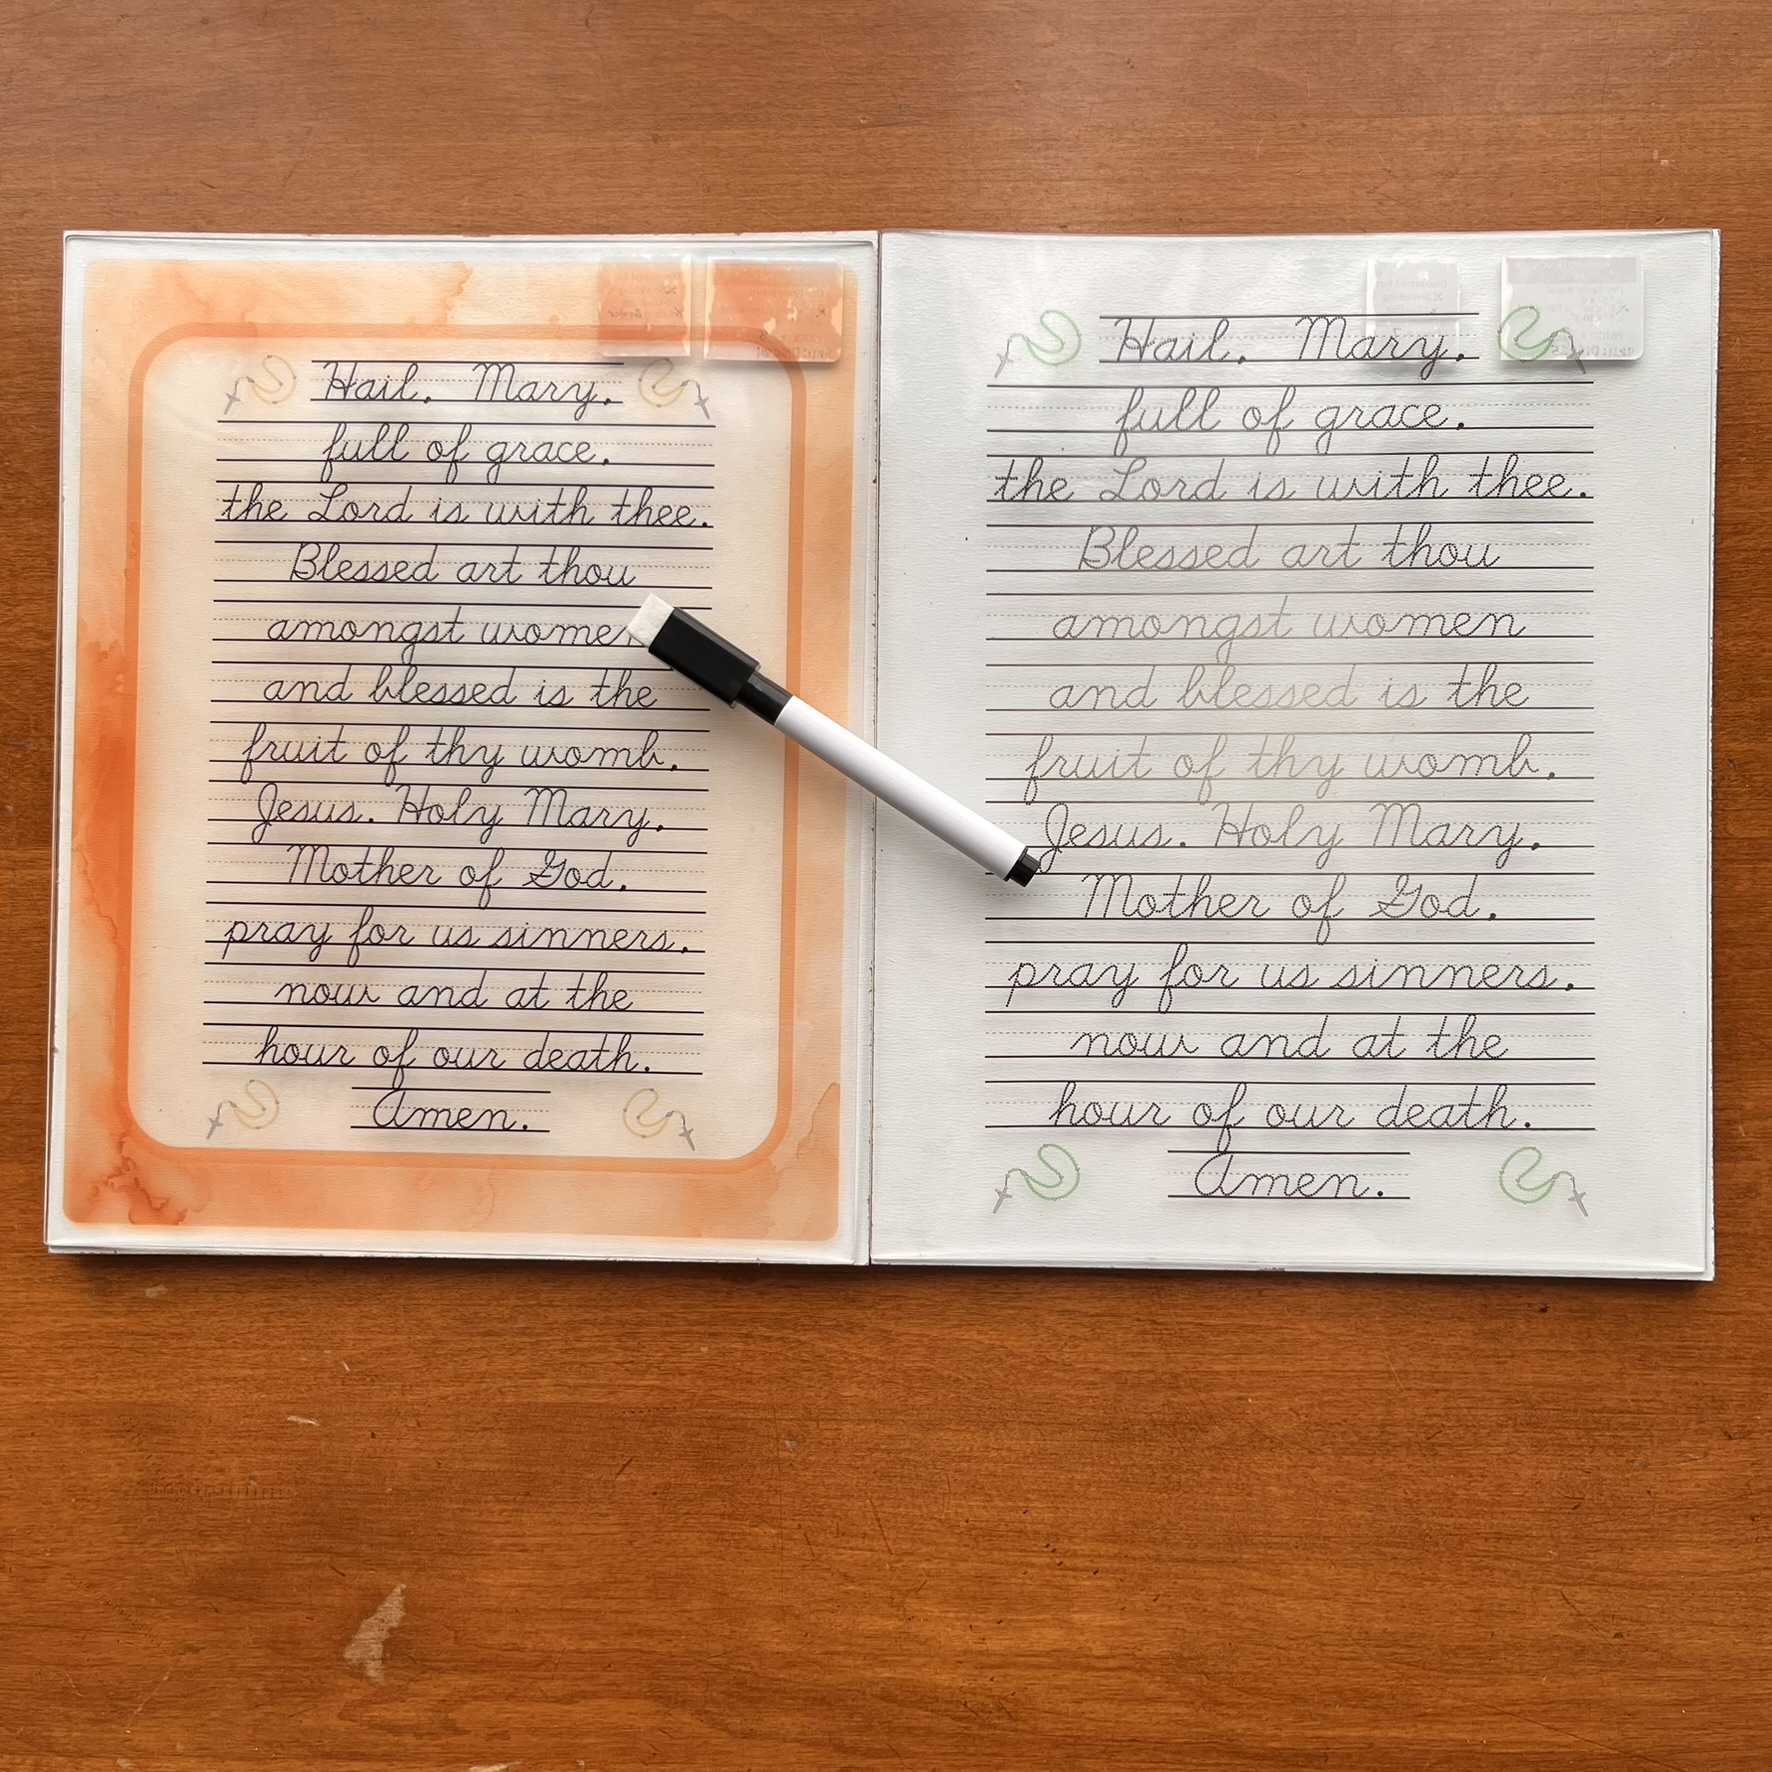 Hail, Mary,
full of grace,
the Lord is with thee.
Blessed art thou
amongst women
and blessed is the
fruit of thy womb,
Jesus. Holy Mary,
Mother of God,
pray for us sinners,
now and at the
hour of our death.
Amen.
Hail, Mary,
full of grace,
the Lord is with thee.
Blessed art thou
amongst women
and blessed is the
fruit of thy womb,
Jesus. Holy Mary,
Mother of God,
pray for us sinners,
now and at the
hour of our death.
Amen.